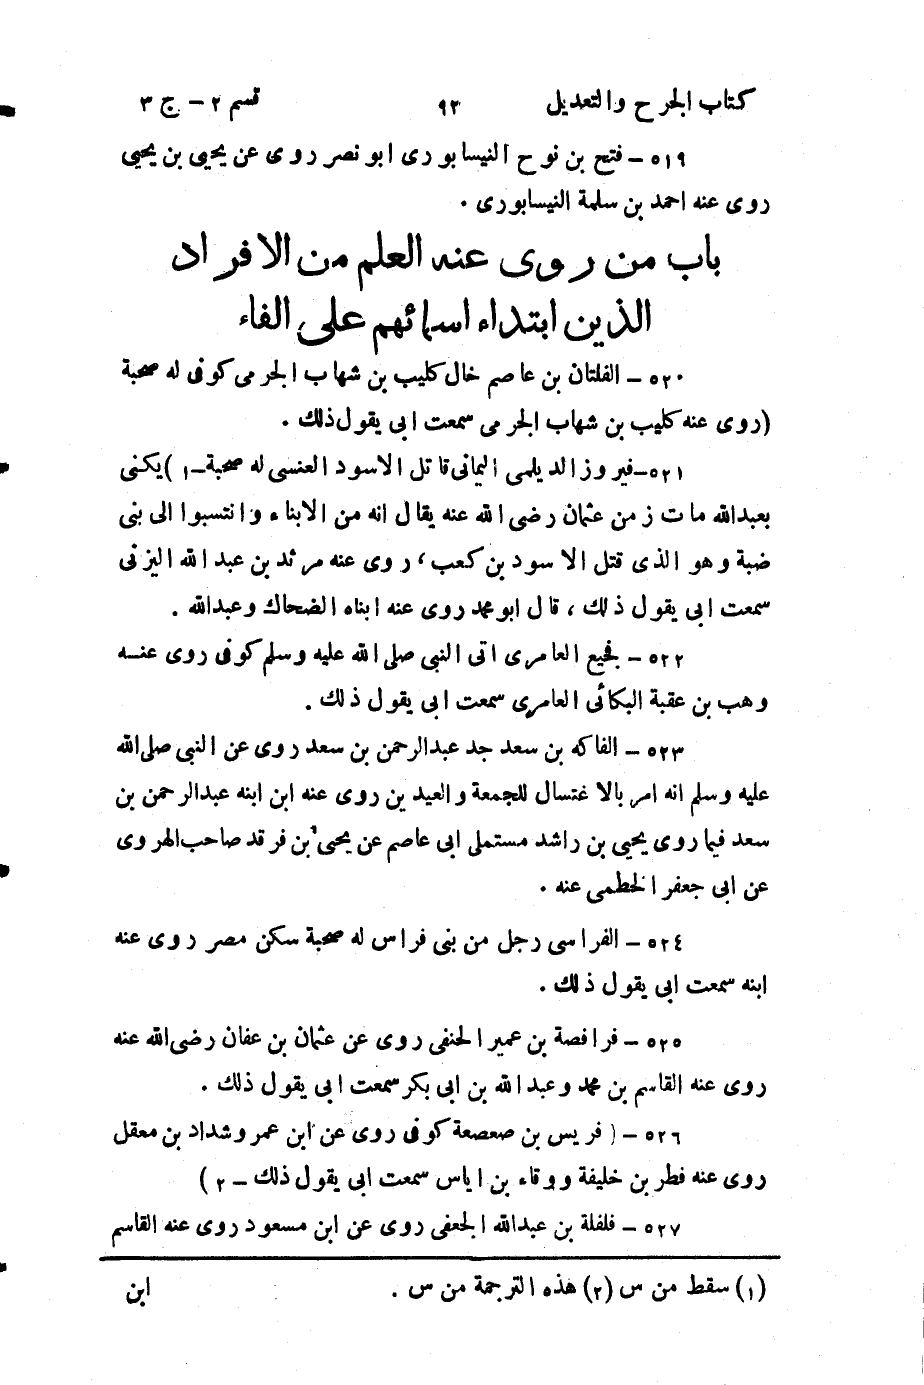 كتاب الجرح والتعديل ٩٢ قسم ٢ - ج ٣
٥١٩ - فتح بن نوح النيسابورى ابو نصر روى عن يحيى بن يحيى
روى عنه احمد بن سلمة النيسابورى .
باب من روى عنه العلم من الافراد
الذين ابتداء اسمائهم على الفاء
٥٢٠ - الفلتان بن عاصم خال كليب بن شهاب الجرمى كوفى له صحبة
(روى عنه كليب بن شهاب الجرمى سمعت ابى يقول ذلك .
٥٢١ - فيروز الديلمى اليمانى قاتل الاسود العنسى له صحبة - ١) يكنى
بعبدالله مات زمن عثمان رضى الله عنه يقال انه من الابناء وانتسبوا الى بنى
ضبة وهو الذى قتل الاسود بن كعب، روى عنه مرثد بن عبد الله اليزنى
سمعت ابى يقول ذلك ، قال ابو محمد روى عنه ابناه الضحاك وعبدالله .
٥٢٢ - فجيع العامرى اتى النبى صلى الله عليه وسلم كوفى روى عنه
وهب بن عقبة البكائى العامرى سمعت ابى يقول ذلك .
٥٢٣ - الفاكه بن سعد جد عبدالرحمن بن سعد روى عن النبى صلى الله
عليه وسلم انه امر بالاغتسال للجمعة والعيدين روى عنه ابن ابنه عبدالرحمن بن
سعد فيما روى يحيى بن راشد مستملى ابى عاصم عن يحيى بن فرقد صاحب الهروى
عن ابى جعفر الخطمى عنه .
٥٢٤ - الفراسى رجل من بنى فراس له صحبة سكن مصر روى عنه
ابنه سمعت ابى يقول ذلك .
٥٢٥ - فرافصة بن عمير الحنفى روى عن عثمان بن عفان رضى الله عنه
روى عنه القاسم بن محمد وعبد الله بن ابى بكر سمعت ابى يقول ذلك .
٥٢٦ - ( فريس بن صعصعة كوفى روى عن ابن عمر وشداد بن معقل
روى عنه فطر بن خليفة ووقاء بن اياس سمعت ابى يقول ذلك - ٢ )
٥٢٧ - فلفلة بن عبدالله الجعفى روى عن ابن مسعود روى عنه القاسم
(١) سقط من س (٢) هذه الترجمة من س . ابن